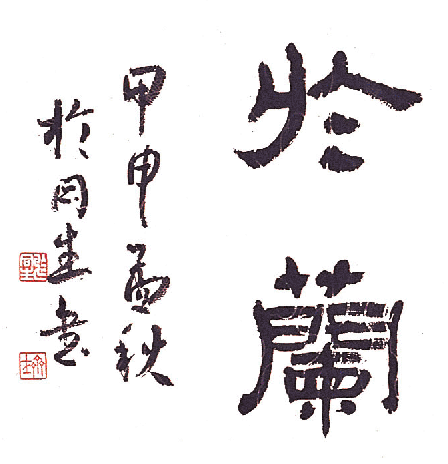 於蘭
甲申孟秋
於同生書